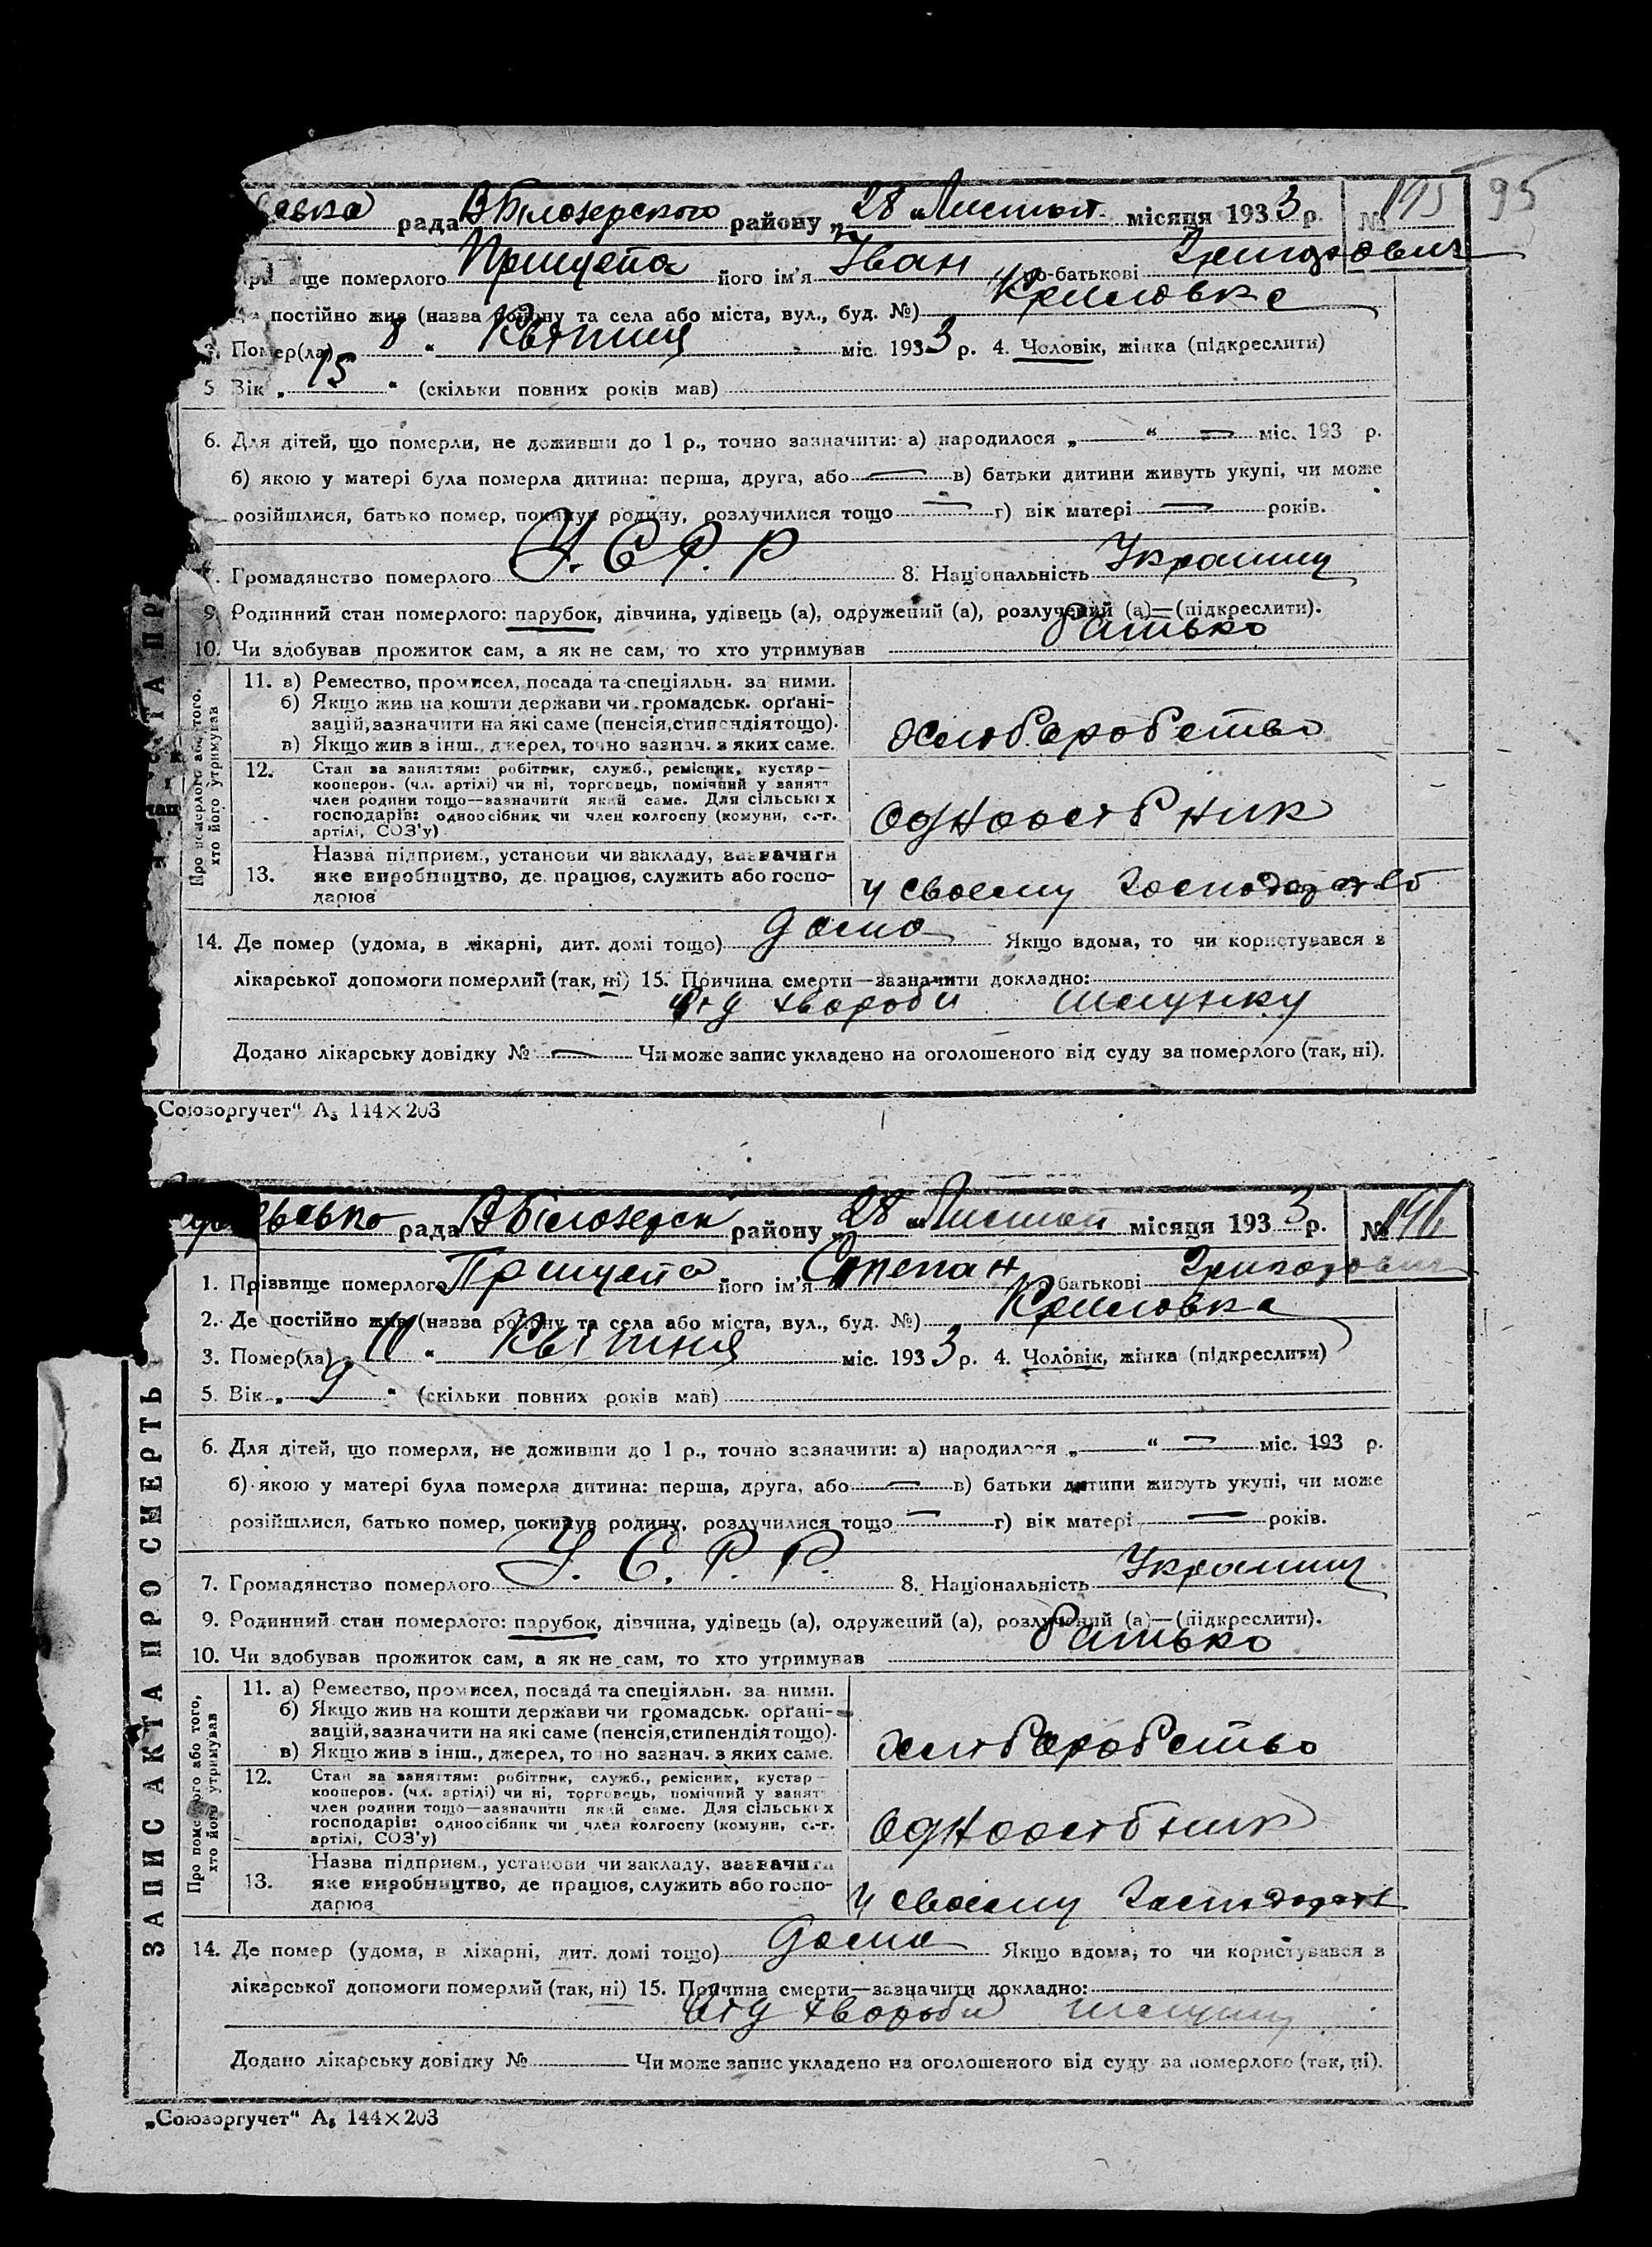 рада В Білозерского району „28“ Листоп. місяця 1933 р. № 195 95
ще померлого Прищепа його ім'я Іван по-батькові Григорович
постійно жив (назва району та села або міста, вул., буд. №) Крилювка
3. Помер(ла) „8“ Квітня міс. 1933 р. 4. Чоловік, жінка (підкреслити)
5 Вік „15“ (скільки повних років мав)
6. Для дітей, що померли, не доживши до 1 р., точно зазначити: а) народилося „—“ — міс. 193 р.
б) якою у матері була померла дитина: перша, друга, або — в) батьки дитини живуть укупі, чи може
розійшлися, батько помер, покинув родину, розлучилися тощо — г) вік матері — років.
Громадянство померлого У.С.Р.Р 8. Національність Украинц
9. Родинний стан померлого: парубок, дівчина, удівець (а), одружений (а), розлучений (а)—(підкреслити).
10. Чи здобував прожиток сам, а як не сам, то хто утримував батько
Про померлого або того, хто його утримував
11. а) Ремество, промисел, посада та спеціяльн. за ними.
б) Якщо жив на кошти держави чи громадськ. орґані-
зацій, зазначити на які саме (пенсія, стипендія тощо).
в) Якщо жив з інш., джерел, точно зазнач. з яких саме.
хліборобство
12. Стан за заняттям: робітник, служб., ремісник, кустар—
кооперов. (чл. артілі) чи ні, торговець, помічний у занятт
член родини тощо—зазначити який саме. Для сільських
господарів: одноосібник чи член колгоспу (комуни, с.-г.
артілі, СОЗ'у)
одноосібник
13. Назва підприєм., установи чи закладу, зазначити
яке виробництво, де працює, служить або госпо-
дарює
у своєму господарстві
14. Де помер (удома, в лікарні, дит. домі тощо) дома Якщо вдома, то чи користувався з
лікарської допомоги померлий (так, ні) 15. Причина смерти—зазначити докладно:
від хвороби шлунку
Додано лікарську довідку № — Чи може запис укладено на оголошеного від суду за померлого (так, ні).
Союзоргучет“ А₅ 144×203
рада В Білозерск району „28“ Листоп місяця 1933 р. №
1. Прізвище померлого Прищепа його ім'я Степан по батькові Григорович
2. Де постійно жив (назва району та села або міста, вул., буд. №) Крилювка
3. Помер(ла) „11“ Квітня міс. 1933 р. 4. Чоловік, жінка (підкреслити)
5. Вік „9“ (скільки повних років мав)
6. Для дітей, що померли, не доживши до 1 р., точно зазначити: а) народилося „—“ — міс. 193 р.
б) якою у матері була померла дитина: перша, друга, або — в) батьки дитини живуть укупі, чи може
розійшлися, батько помер, покинув родину, розлучилися тощо — г) вік матері — років.
7. Громадянство померлого У.С.Р.Р. 8. Національність Украинц
9. Родинний стан померлого: парубок, дівчина, удівець (а), одружений (а), розлучений (а)—(підкреслити).
10. Чи здобував прожиток сам, а як не сам, то хто утримував батько
ЗАПИС АКТА ПРО СМЕРТЬ
Про померлого або того, хто його утримував
11. а) Ремество, промисел, посада та спеціяльн. за ними.
б) Якщо жив на кошти держави чи громадськ. орґані-
зацій, зазначити на які саме (пенсія, стипендія тощо).
в) Якщо жив з інш., джерел, точно зазнач. з яких саме.
хліборобство
12. Стан за заняттям: робітник, служб., ремісник, кустар—
кооперов. (чл. артілі) чи ні, торговець, помічний у занят
член родини тощо—зазначити який саме. Для сільських
господарів: одноосібник чи член колгоспу (комуни, с.-г.
артілі, СОЗ'у)
одноосібник
13. Назва підприєм., установи чи закладу, зазначити
яке виробництво, де працює, служить або госпо-
дарює
у своєму господарств
14. Де помер (удома, в лікарні, дит. домі тощо) дома Якщо вдома, то чи користувався з
лікарської допомоги померлий (так, ні) 15. Причина смерти—зазначити докладно:
від хвороби шлунку
Додано лікарську довідку № Чи може запис укладено на оголошеного від суду за померлого (так, ні).
„Союзоргучет“ А₅ 144×203